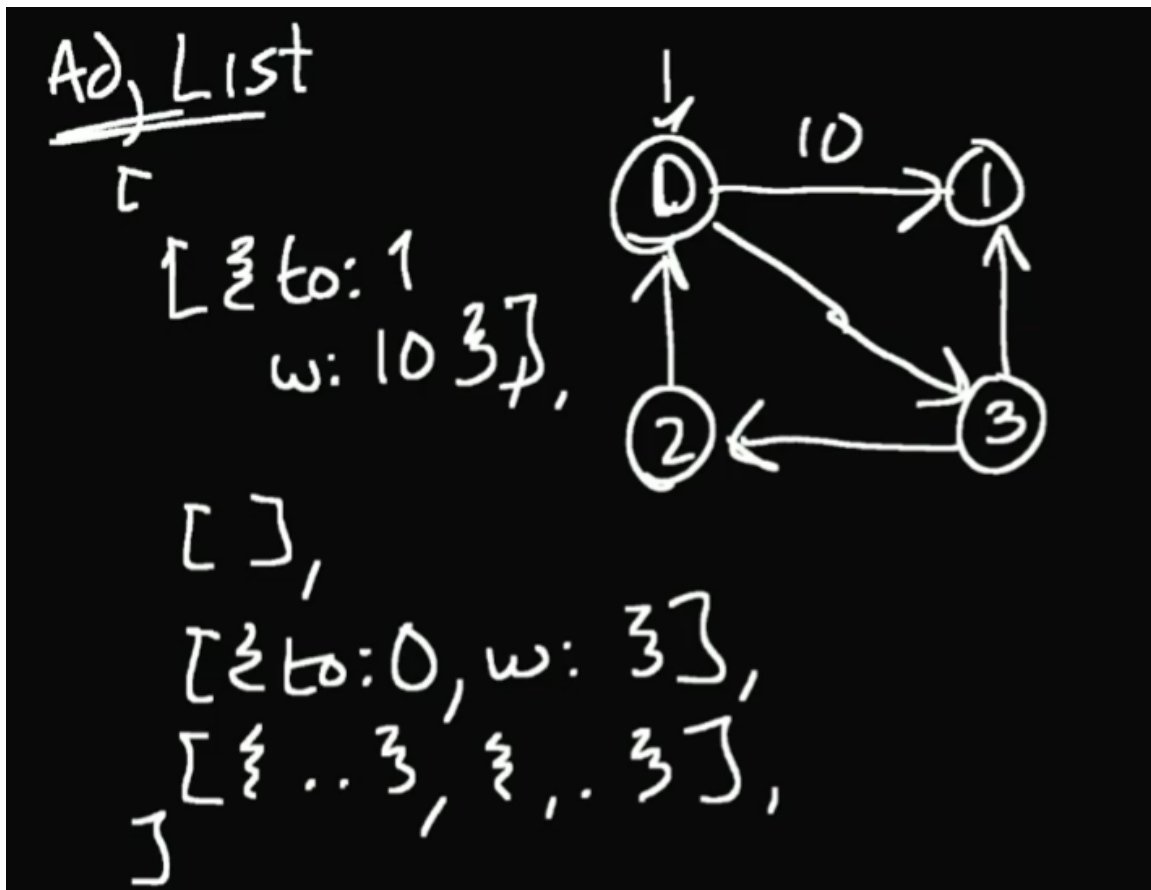 Adj List
[
[{to: 1
w: 10}],
[],
[{to: 0, w: }],
[{..}, {,. }],
]
10
0
1
2
3